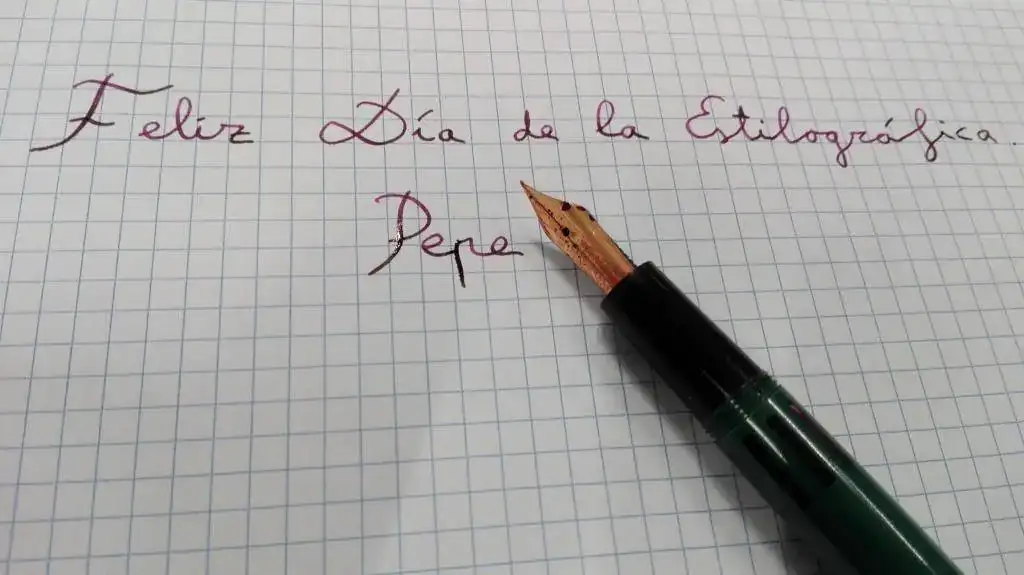 Feliz Día de la Estilográfica.
Pepe